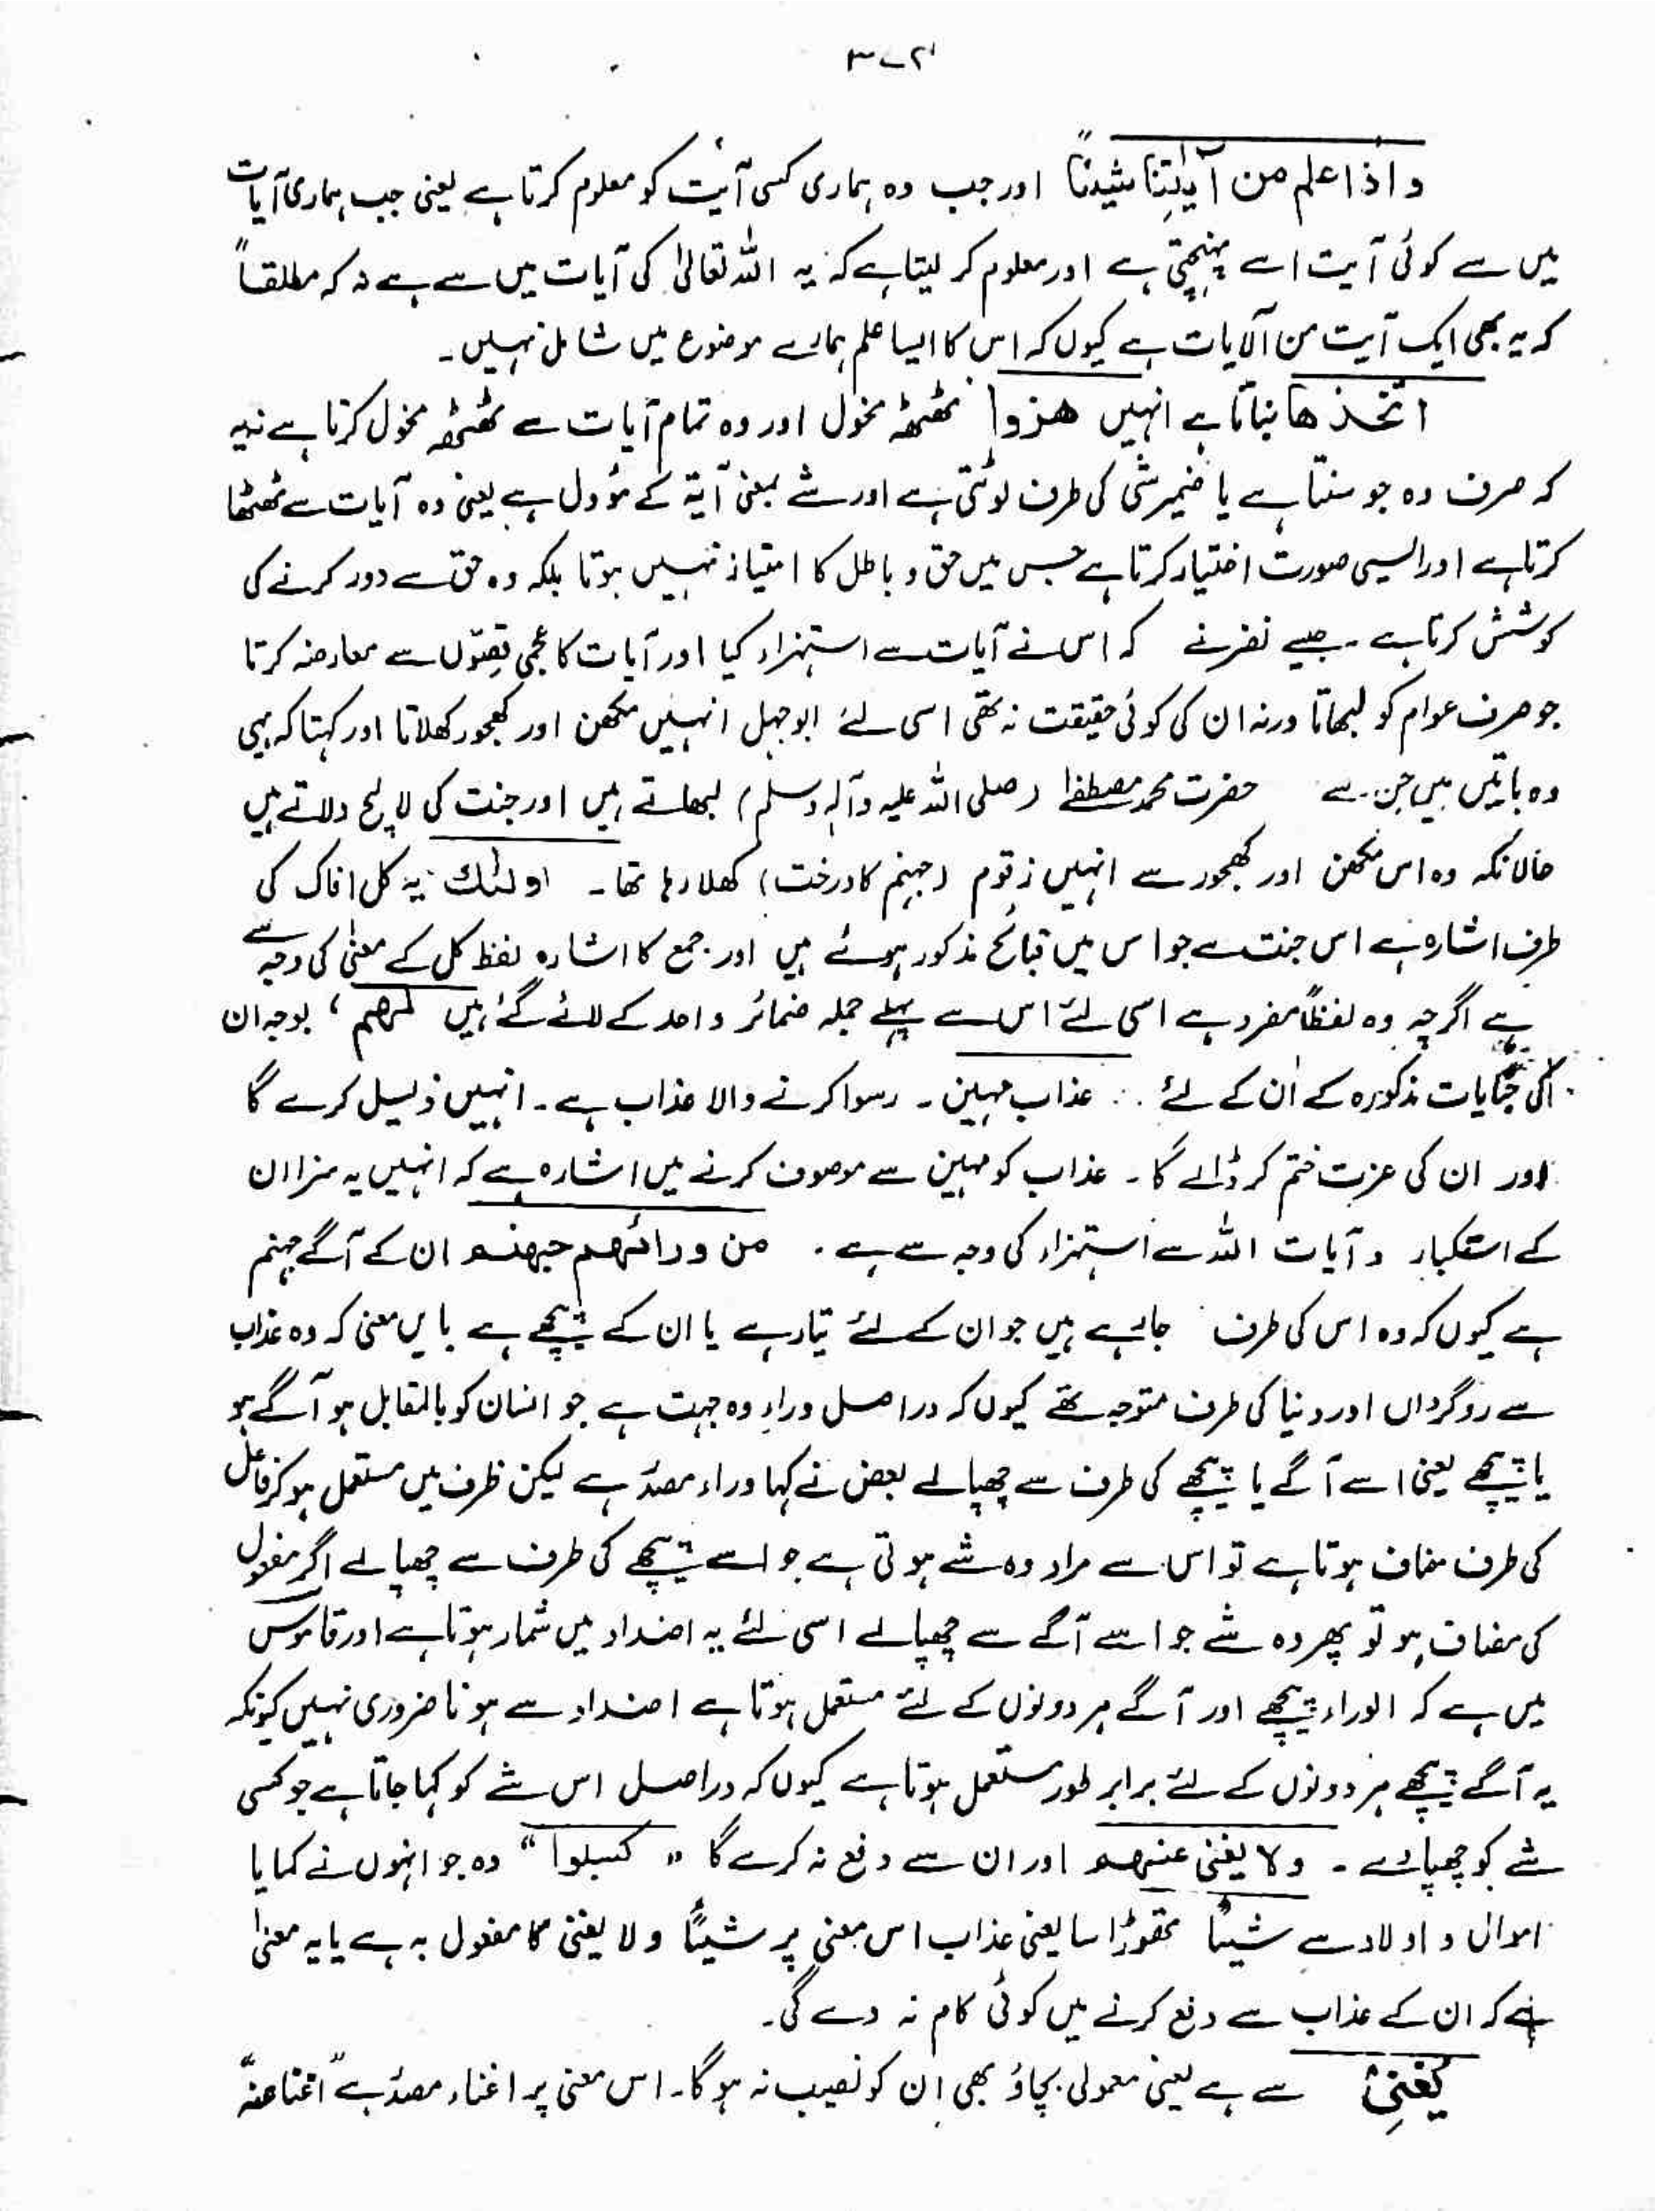 ۳۷۲
واذا علم من آیٰتِنا شیئًا اور جب وہ ہماری کسی آیت کو معلوم کرتا ہے یعنی جب ہماری آیات
میں سے کوئی آیت اسے پہنچتی ہے اور معلوم کر لیتا ہے کہ یہ اللہ تعالیٰ کی آیات میں سے ہے نہ کہ مطلقاً
کہ یہ بھی ایک آیت من الآیات ہے کیوں کہ اس کا ایسا علم ہمارے موضوع میں شامل نہیں۔
اتخذھا بناتا ہے انہیں ھزوا ٹھٹھہ مخول اور وہ تمام آیات سے ٹھٹھہ مخول کرتا ہے نہ یہ
کہ صرف وہ جو سنتا ہے یا ضمیر شی کی طرف لوٹتی ہے اور شے بمعنی آیۃ کے مؤول ہے یعنی وہ آیات سے ٹھٹھا
کرتا ہے اور ایسی صورت اختیار کرتا ہے جس میں حق و باطل کا امتیاز نہیں ہوتا بلکہ وہ حق سے دور کرنے کی
کوشش کرتا ہے ۔ جیسے نضر نے کہ اس نے آیات سے استہزاء کیا اور آیات کا عجمی قصّوں سے معارضہ کرتا
جو صرف عوام کو لبھاتا ورنہ ان کی کوئی حقیقت نہ تھی اسی لئے ابوجہل انہیں مکھن اور کھجور کھلاتا اور کہتا کہ یہی
وہ باتیں ہیں جن سے حضرت محمد مصطفےٰ (صلی اللہ علیہ وآلہ وسلم) لبھاتے ہیں اور جنت کی لالچ دلاتے ہیں
حالانکہ وہ اس مکھن اور کھجور سے انہیں زقوم (جہنم کا درخت) کھلا رہا تھا ۔ اولئٰک یہ کل افاک کی
طرف اشارہ ہے اس جنت سے جو اس میں قبائح مذکور ہوئے ہیں اور جمع کا اشارہ لفظ کل کے معنیٰ کی وجہ سے
ہے اگرچہ وہ لفظاً مفرد ہے اسی لئے اس سے پہلے جملہ ضمائر واحد کے لائے گئے ہیں لہم ، بوجہ ان
کی جنایات مذکورہ کے ان کے لئے .. عذاب مہین ۔ رسوا کرنے والا عذاب ہے ۔ انہیں ذلیل کرے گا
اور ان کی عزت ختم کر ڈالے گا ۔ عذاب کو مہین سے موصوف کرنے میں اشارہ ہے کہ انہیں یہ سزا ان
کے استکبار و آیات اللہ سے استہزاء کی وجہ سے ہے . من ورائھم جہنم ان کے آگے جہنم
ہے کیوں کہ وہ اس کی طرف جا رہے ہیں جو ان کے لئے تیار ہے یا ان کے پیچھے ہے بایں معنی کہ وہ عذاب
سے روگرداں اور دنیا کی طرف متوجہ تھے کیوں کہ دراصل وراء وہ جہت ہے جو انسان کو بالمقابل ہو آگے ہو
یا پیچھے یعنی اسے آگے یا پیچھے کی طرف سے چھپالے بعض نے کہا وراء مصدر ہے لیکن ظرف میں مستعمل ہو کر فاعل
کی طرف مضاف ہوتا ہے تو اس سے مراد وہ شے ہوتی ہے جو اسے پیچھے کی طرف سے چھپالے اگر مفعول
کی مضاف ہو تو پھر وہ شے جو اسے آگے سے چھپالے اسی لئے یہ اضداد میں شمار ہوتا ہے اور قاموس
میں ہے کہ الوراء پیچھے اور آگے ہر دونوں کے لئے مستعمل ہوتا ہے اضداد سے ہونا ضروری نہیں کیونکہ
یہ آگے پیچھے ہر دونوں کے لئے برابر طور مستعمل ہوتا ہے کیوں کہ دراصل اس شے کو کہا جاتا ہے جو کسی
شے کو چھپا دے ۔ ولا یغنی عنھم اور ان سے دفع نہ کرے گا " کسبوا " وہ جو انہوں نے کمایا
اموال و اولاد سے شیئًا تھوڑا سا یعنی عذاب اس معنی پر شیئًا ولا یغنی کا مفعول بہ ہے یا یہ معنیٰ
ہے کہ ان کے عذاب سے دفع کرنے میں کوئی کام نہ دے گی ۔
یغنی سے ہے یعنی معمولی بچاؤ بھی ان کو نصیب نہ ہوگا۔ اس معنی پر اغناء مصدر ہے "اغنا عنہ"